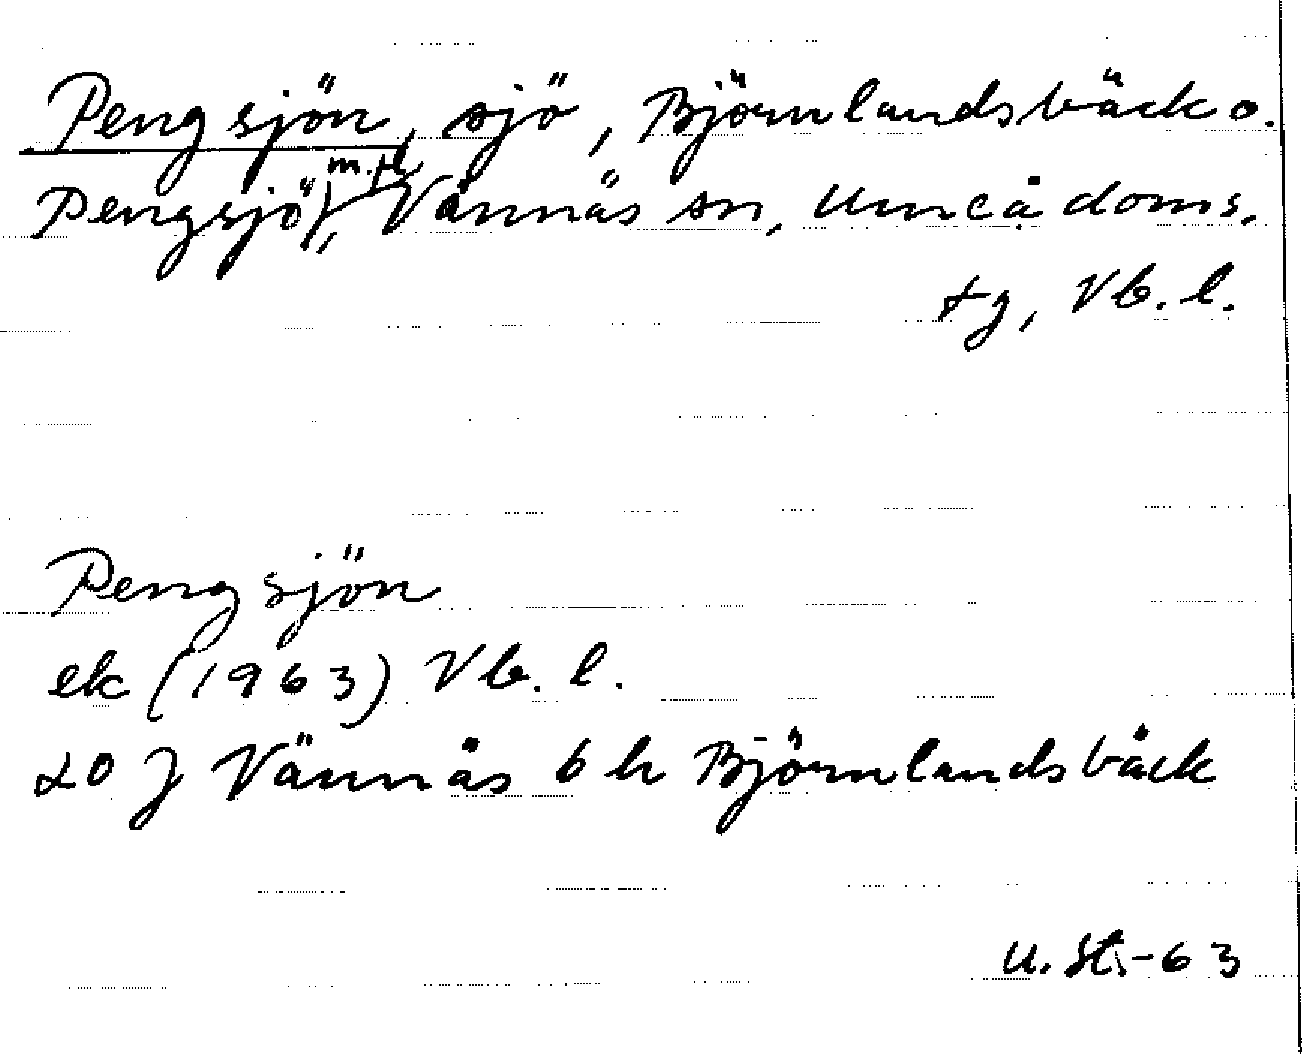 Pengsjön, sjö, Björnlandsbäck o.
Pengsjö m.fl., Vännäs sn, Umeå doms.
tg, Vb. l.
Pengsjön
ek (1963) Vb. l.
20 J Vännäs 6 h Björnlandsbäck
U. St. -63